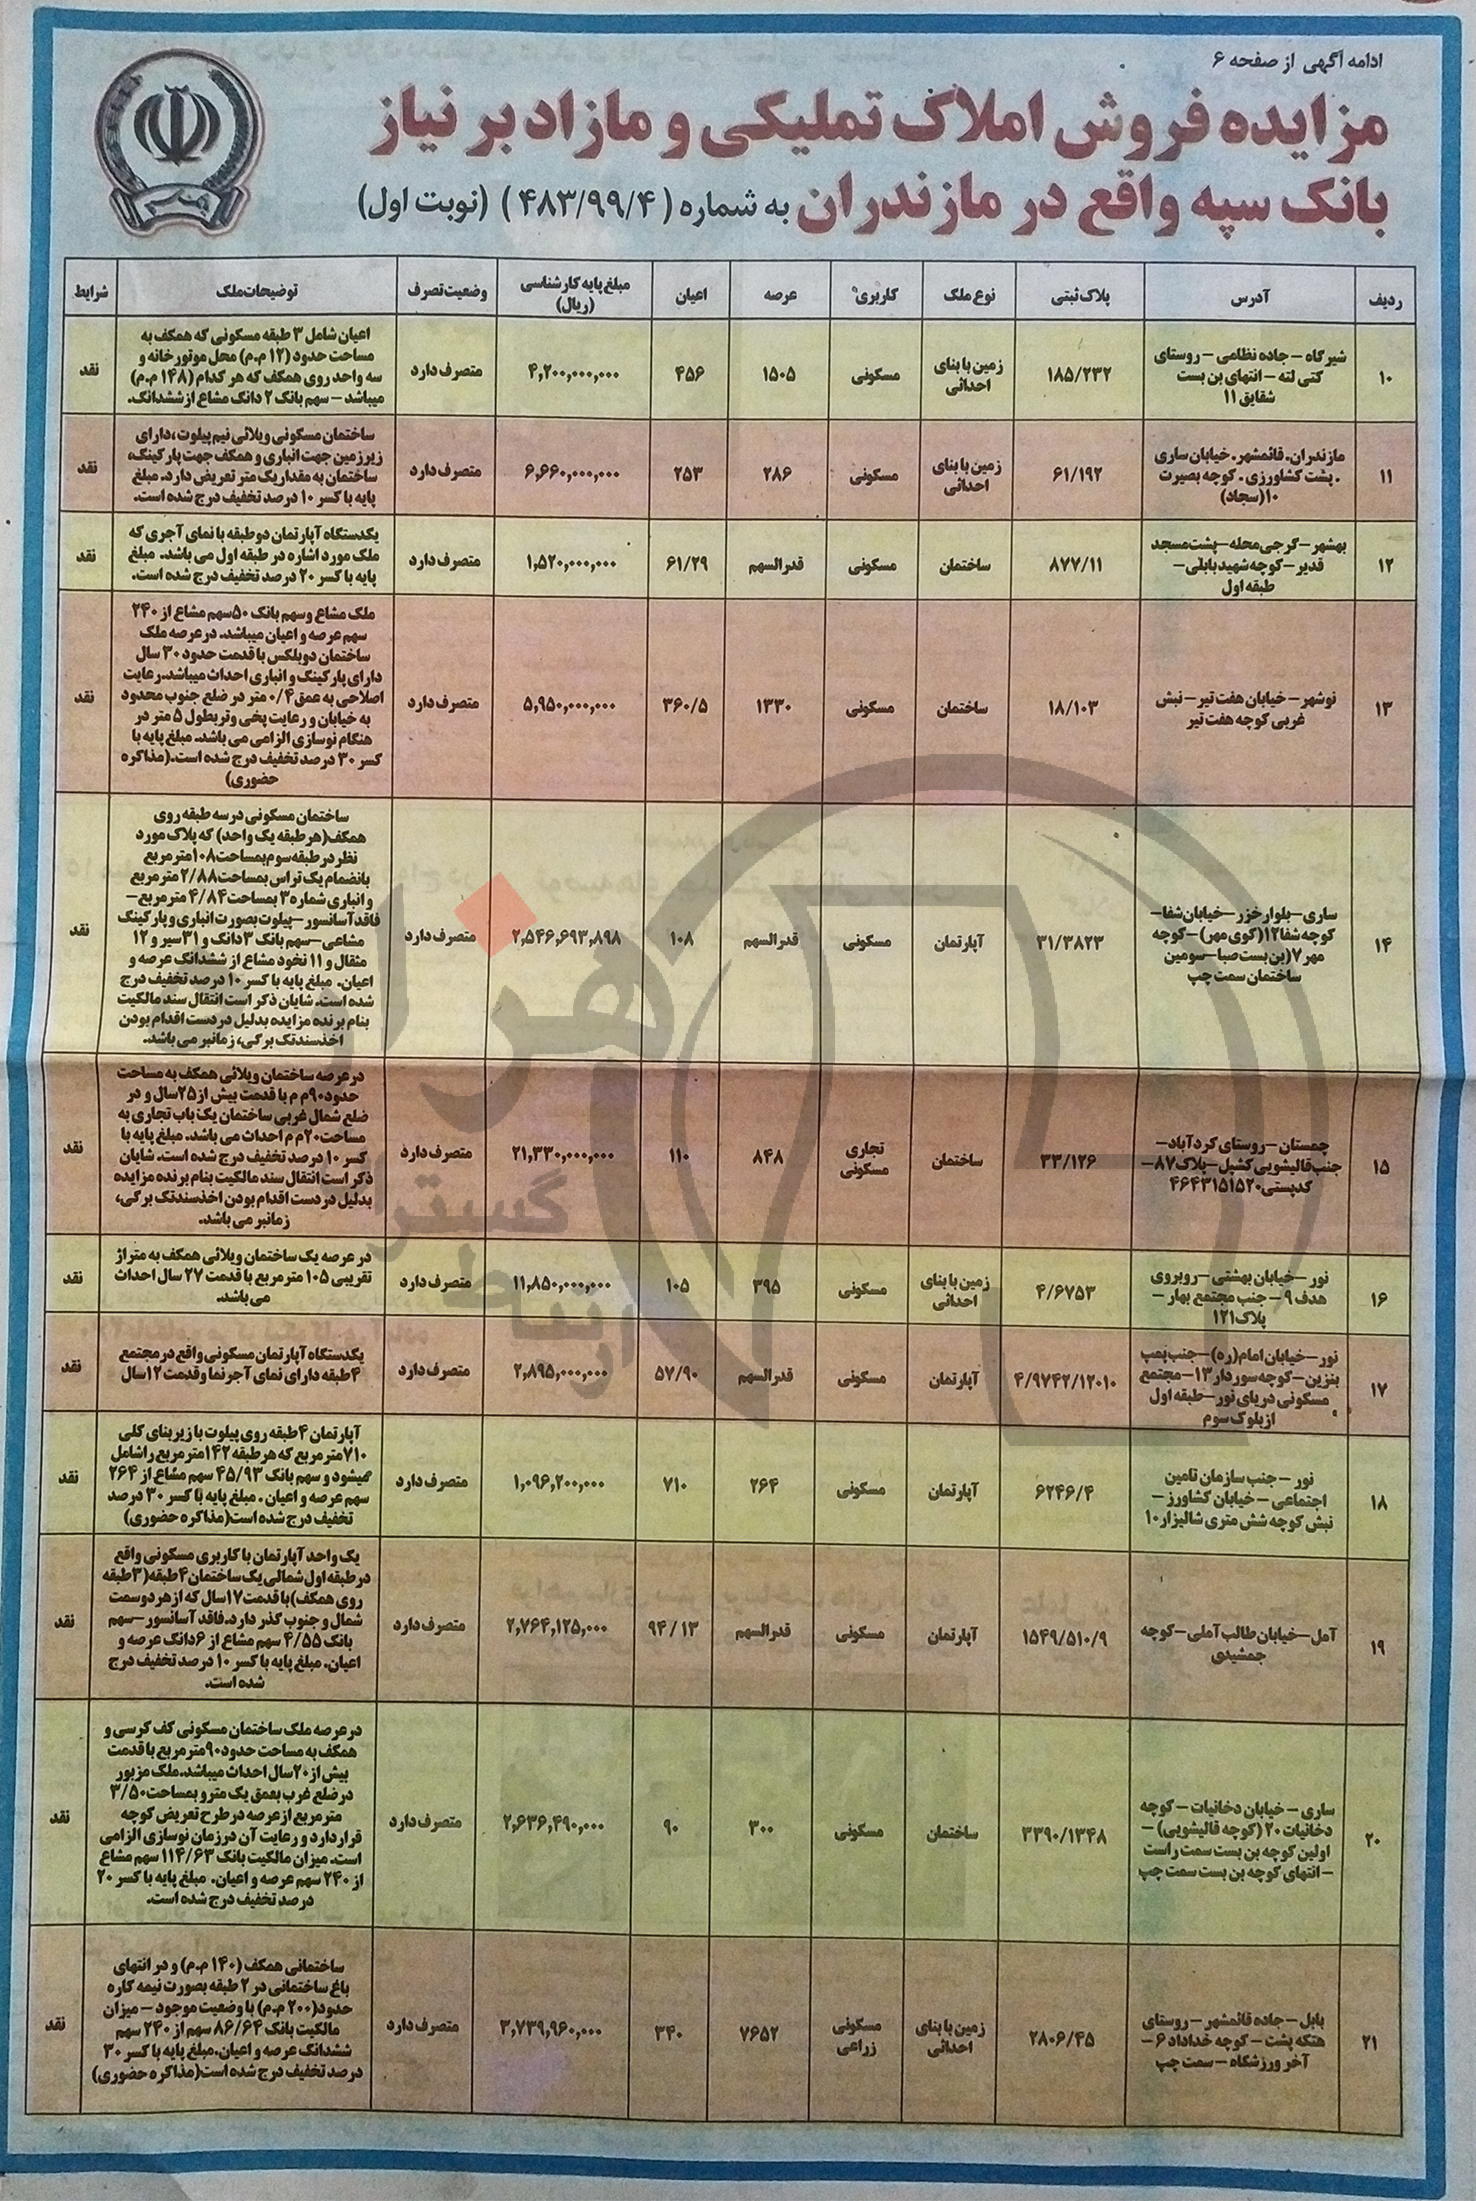 ادامه آگهی از صفحه ۶
مزایده فروش املاک تملیکی و مازاد بر نیاز
بانک سپه واقع در مازندران به شماره ( ۴۸۳/۹۹/۴ ) (نوبت اول)
ردیف	آدرس	پلاک ثبتی	نوع ملک	کاربری	عرصه	اعیان	مبلغ پایه کارشناسی (ریال)	وضعیت تصرف	توضیحات ملک	شرایط
۱۰	شیرگاه – جاده نظامی – روستای کتی لته – انتهای بن بست شقایق ۱۱	۱۸۵/۲۳۲	زمین با بنای احداثی	مسکونی	۱۵۰۵	۴۵۶	۴,۲۰۰,۰۰۰,۰۰۰	متصرف دارد	اعیان شامل ۳ طبقه مسکونی که همکف به مساحت حدود (۱۲ م.م) محل موتورخانه و سه واحد روی همکف که هر کدام (۱۴۸ م.م) میباشد – سهم بانک ۲ دانگ مشاع از ششدانگ.	نقد
۱۱	مازندران. قائمشهر. خیابان ساری . پشت کشاورزی . کوچه بصیرت ۱۰(سجاد)	۶۱/۱۹۲	زمین با بنای احداثی	مسکونی	۲۸۶	۲۵۳	۶,۶۶۰,۰۰۰,۰۰۰	متصرف دارد	ساختمان مسکونی ویلائی نیم پیلوت، دارای زیرزمین جهت انباری و همکف جهت پارکینگ، ساختمان به مقدار یک متر تعریض دارد. مبلغ پایه با کسر ۱۰ درصد تخفیف درج شده است.	نقد
۱۲	بهشهر – گرجی محله – پشت مسجد قدیر – کوچه شهید بابائی – طبقه اول	۸۷۷/۱۱	ساختمان	مسکونی	قدرالسهم	۶۱/۲۹	۱,۵۲۰,۰۰۰,۰۰۰	متصرف دارد	یکدستگاه آپارتمان دو طبقه با نمای آجری که ملک مورد اشاره در طبقه اول می باشد. مبلغ پایه با کسر ۲۰ درصد تخفیف درج شده است.	نقد
۱۳	نوشهر – خیابان هفت تیر – نبش غربی کوچه هفت تیر	۱۸/۱۰۳	ساختمان	مسکونی	۱۳۳۰	۳۶۰/۵	۵,۹۵۰,۰۰۰,۰۰۰	متصرف دارد	ملک مشاع و سهم بانک ۵۰ سهم مشاع از ۲۴۰ سهم عرصه و اعیان میباشد. در عرصه ملک ساختمان دوبلکس با قدمت حدود ۳۰ سال دارای پارکینگ و انباری احداث میباشد. رعایت اصلاحی به عمق ۰/۴ متر در ضلع جنوب محدود به خیابان و رعایت پخی وتر بطول ۵ متر در هنگام نوسازی الزامی می باشد. مبلغ پایه با کسر ۳۰ درصد تخفیف درج شده است.(مذاکره حضوری)	نقد
۱۴	ساری – بلوار خزر – خیابان شفا – کوچه شفا۱۲(کوی مهر) – کوچه مهر۷(بن بست صبا – سومین ساختمان سمت چپ	۳۱/۳۸۲۳	آپارتمان	مسکونی	قدرالسهم	۱۰۸	۲,۵۴۶,۶۹۳,۸۹۸	متصرف دارد	ساختمان مسکونی در سه طبقه روی همکف(هر طبقه یک واحد) که پلاک مورد نظر در طبقه سوم بمساحت ۱۰۸ متر مربع بانضمام یک تراس بمساحت ۲/۸۸ متر مربع و انباری شماره ۳ بمساحت ۴/۸۴ متر مربع – فاقد آسانسور – پیلوت بصورت انباری و پارکینگ مشاعی – سهم بانک ۳ دانگ و ۳۱ سیر و ۱۲ مثقال و ۱۱ نخود مشاع از ششدانگ عرصه و اعیان. مبلغ پایه با کسر ۱۰ درصد تخفیف درج شده است. شایان ذکر است انتقال سند مالکیت بنام برنده مزایده بدلیل در دست اقدام بودن اخذ سند تک برگی، زمانبر می باشد.	نقد
۱۵	چمستان – روستای کردآباد – جنب قالیشویی کشپل – پلاک ۸۷ – کدپستی ۴۶۴۳۱۵۱۵۲۰	۳۳/۱۲۶	ساختمان	تجاری مسکونی	۸۴۸	۱۱۰	۲۱,۳۳۰,۰۰۰,۰۰۰	متصرف دارد	در عرصه ساختمان ویلائی همکف به مساحت حدود ۹۰ م م با قدمت بیش از ۲۵ سال و در ضلع شمال غربی ساختمان یک باب تجاری به مساحت ۲۰ م م احداث می باشد. مبلغ پایه با کسر ۱۰ درصد تخفیف درج شده است. شایان ذکر است انتقال سند مالکیت بنام برنده مزایده بدلیل در دست اقدام بودن اخذ سند تک برگی، زمانبر می باشد.	نقد
۱۶	نور – خیابان بهشتی – روبروی هدف ۹ – جنب مجتمع بهار – پلاک ۱۲۱	۴/۶۷۵۳	زمین با بنای احداثی	مسکونی	۳۹۵	۱۰۵	۱۱,۸۵۰,۰۰۰,۰۰۰	متصرف دارد	در عرصه یک ساختمان ویلائی همکف به متراژ تقریبی ۱۰۵ متر مربع با قدمت ۲۷ سال احداث می باشد.	نقد
۱۷	نور – خیابان امام(ره) – جنب پمپ بنزین – کوچه سوردار ۱۳ – مجتمع مسکونی دریای نور – طبقه اول از بلوک سوم	۴/۹۷۴۲/۱۲۰۱۰	آپارتمان	مسکونی	قدرالسهم	۵۷/۹۰	۲,۸۹۵,۰۰۰,۰۰۰	متصرف دارد	یکدستگاه آپارتمان مسکونی واقع در مجتمع ۴ طبقه دارای نمای آجرنما و قدمت ۱۲ سال	نقد
۱۸	نور – جنب سازمان تامین اجتماعی – خیابان کشاورز – نبش کوچه شش متری شالیزار ۱۰	۶۲۴۶/۴	آپارتمان	مسکونی	۲۶۴	۷۱۰	۱,۰۹۶,۲۰۰,۰۰۰	متصرف دارد	آپارتمان ۴ طبقه روی پیلوت با زیربنای کلی ۷۱۰ متر مربع که هر طبقه ۱۴۲ متر مربع را شامل میشود و سهم بانک ۴۵/۹۳ سهم مشاع از ۲۶۴ سهم عرصه و اعیان . مبلغ پایه با کسر ۳۰ درصد تخفیف درج شده است(مذاکره حضوری)	نقد
۱۹	آمل – خیابان طالب آملی – کوچه جمشیدی	۱۵۴۹/۵۱۰/۹	آپارتمان	مسکونی	قدرالسهم	۹۴/۱۳	۲,۷۶۴,۱۲۵,۰۰۰	متصرف دارد	یک واحد آپارتمان با کاربری مسکونی واقع در طبقه اول شمالی یک ساختمان ۴ طبقه(۳ طبقه روی همکف) با قدمت ۱۷ سال که از هر دو سمت شمال و جنوب گذر دارد. فاقد آسانسور – سهم بانک ۴/۵۵ سهم مشاع از ۶ دانگ عرصه و اعیان. مبلغ پایه با کسر ۱۰ درصد تخفیف درج شده است.	نقد
۲۰	ساری – خیابان دخانیات – کوچه دخانیات ۲۰ (کوچه قالیشویی) – اولین کوچه بن بست سمت راست – انتهای کوچه بن بست سمت چپ	۳۳۹۰/۱۳۴۸	ساختمان	مسکونی	۳۰۰	۹۰	۲,۶۳۶,۴۹۰,۰۰۰	متصرف دارد	در عرصه ملک ساختمان مسکونی کف کرسی و همکف به مساحت حدود ۹۰ متر مربع با قدمت بیش از ۲۰ سال احداث میباشد. ملک مزبور در ضلع غرب بعمق یک متر و بمساحت ۳/۵۰ متر مربع از عرصه در طرح تعریض کوچه قرار دارد و رعایت آن در زمان نوسازی الزامی است. میزان مالکیت بانک ۱۱۴/۶۳ سهم مشاع از ۲۴۰ سهم عرصه و اعیان. مبلغ پایه با کسر ۲۰ درصد تخفیف درج شده است.	نقد
۲۱	بابل – جاده قائمشهر – روستای هتکه پشت – کوچه خداداد ۶ – آخر ورزشگاه – سمت چپ	۲۸۰۶/۴۵	زمین با بنای احداثی	مسکونی زراعی	۷۶۵۲	۳۴۰	۳,۷۳۹,۹۶۰,۰۰۰	متصرف دارد	ساختمانی همکف (۱۴۰ م.م) و در انتهای باغ ساختمانی در ۲ طبقه بصورت نیمه کاره حدود(۲۰۰ م.م) با وضعیت موجود – میزان مالکیت بانک ۸۶/۶۴ سهم از ۲۴۰ سهم ششدانگ عرصه و اعیان. مبلغ پایه با کسر ۳۰ درصد تخفیف درج شده است(مذاکره حضوری)	نقد